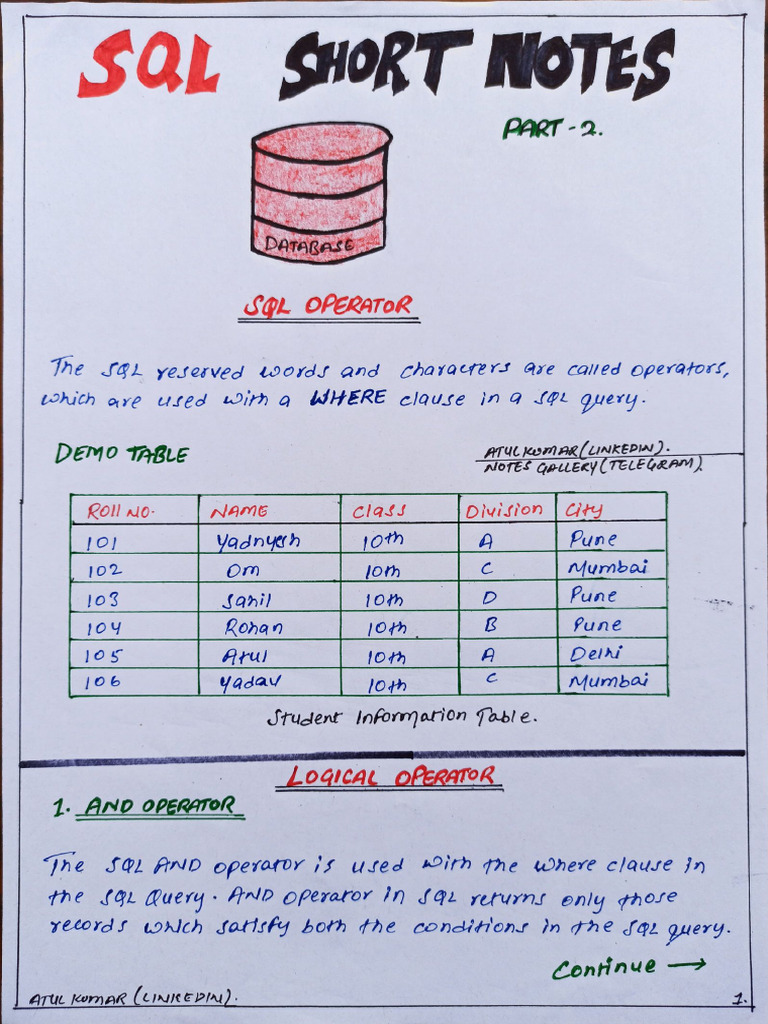 SQL SHORT NOTES
PART-2.
DATABASE
SQL OPERATOR
The SQL reserved words and characters are called operators,
which are used with a WHERE clause in a SQL query.
DEMO TABLE
ATUL KUMAR (LINKEDIN).
NOTES GALLERY (TELEGRAM).
Roll NO. NAME Class Division City
101 Yadnyesh 10th A Pune
102 Om 10th C Mumbai
103 Sahil 10th D Pune
104 Rohan 10th B Pune
105 Atul 10th A Delhi
106 Yadav 10th C Mumbai
Student Information Table.
LOGICAL OPERATOR
1. AND OPERATOR
The SQL AND operator is used with the where clause in
the SQL Query. AND operator in SQL returns only those
records which satisfy both the conditions in the SQL query.
Continue →
ATUL KUMAR (LINKEDIN).
1.